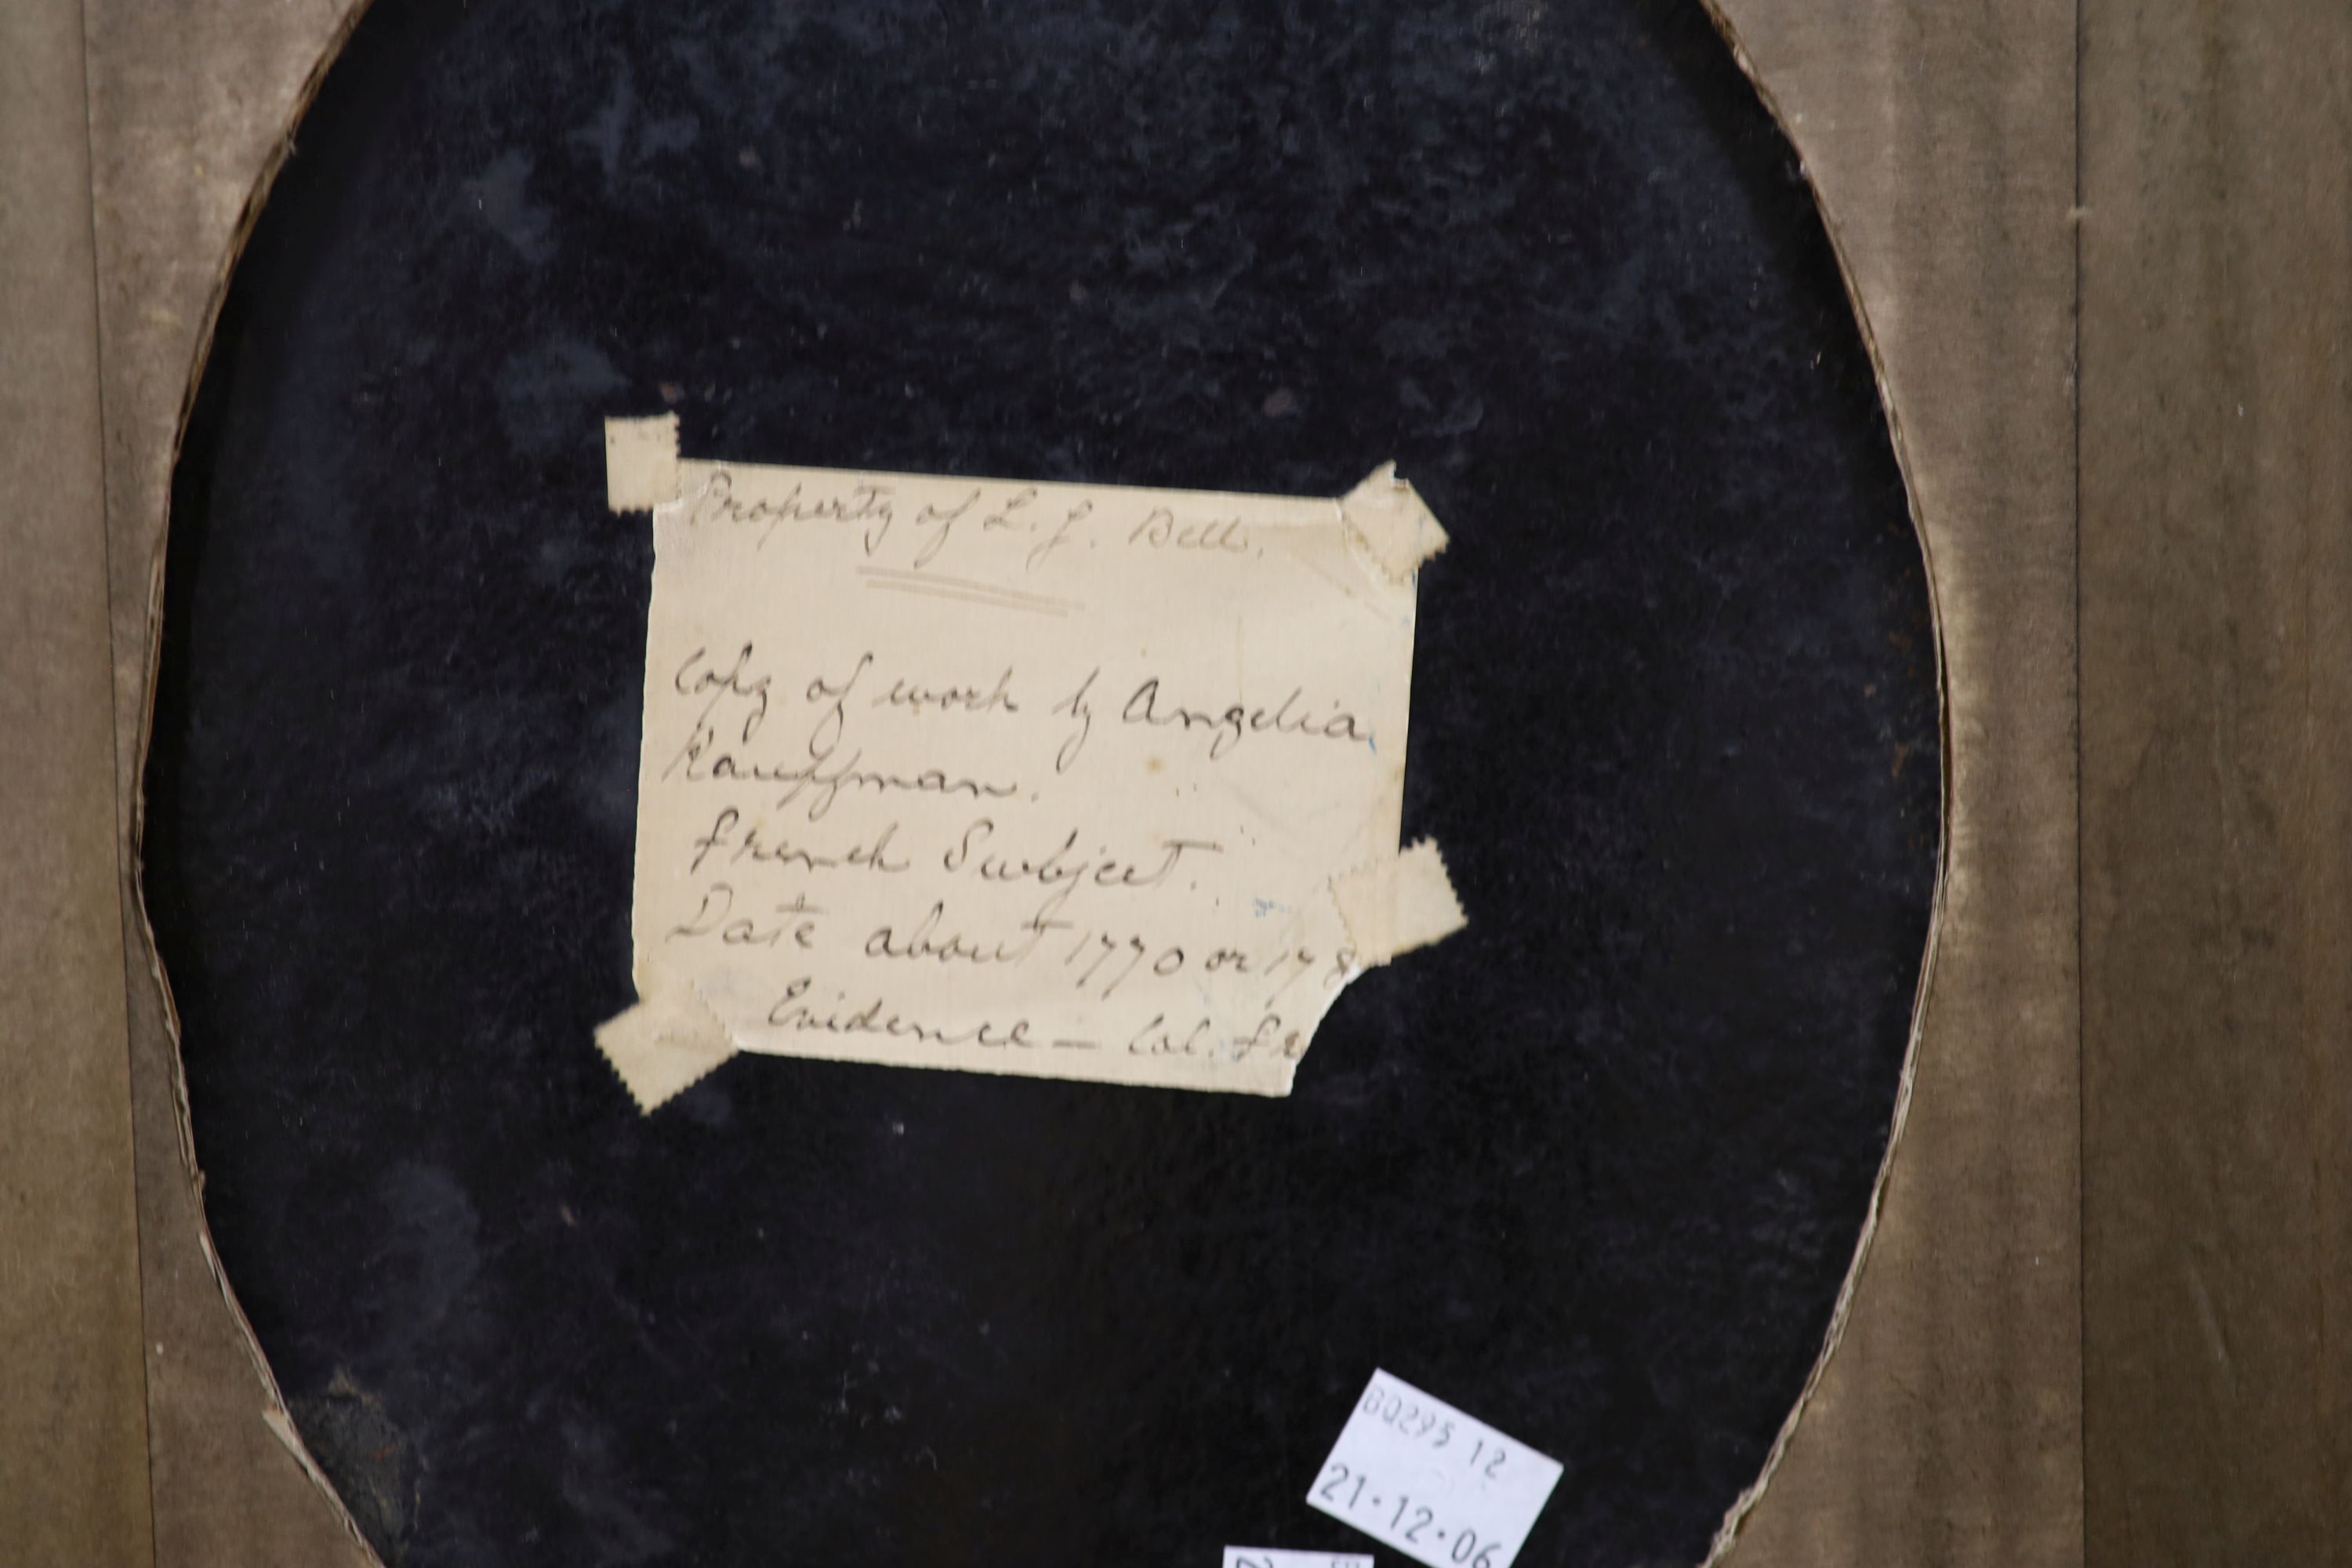 Property of L. J. Bell.
Copy of work by Angelia
Kauffman.
French Subject.
Date about 1770 or 178
Evidence – Col. Fr
BQ295 12
21·12·06